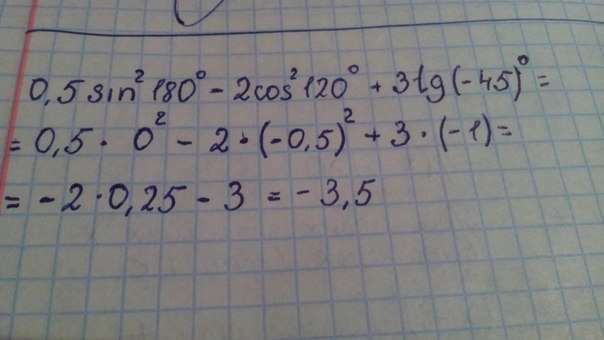 0,5 sin² 180° - 2cos² 120° + 3tg(-45)° =
= 0,5 · 0² - 2 · (-0,5)² + 3 · (-1) =
= -2 · 0,25 - 3 = -3,5